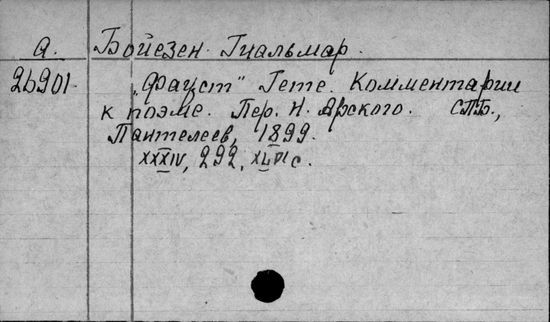 А. Бойезен Гиальмар.
26901 „Фауст" Гете. Комментарии
к поэме. Пер. Н. Арского. СПБ.,
Пантелеев, 1899.
XXXIV, 292, XLVI с.